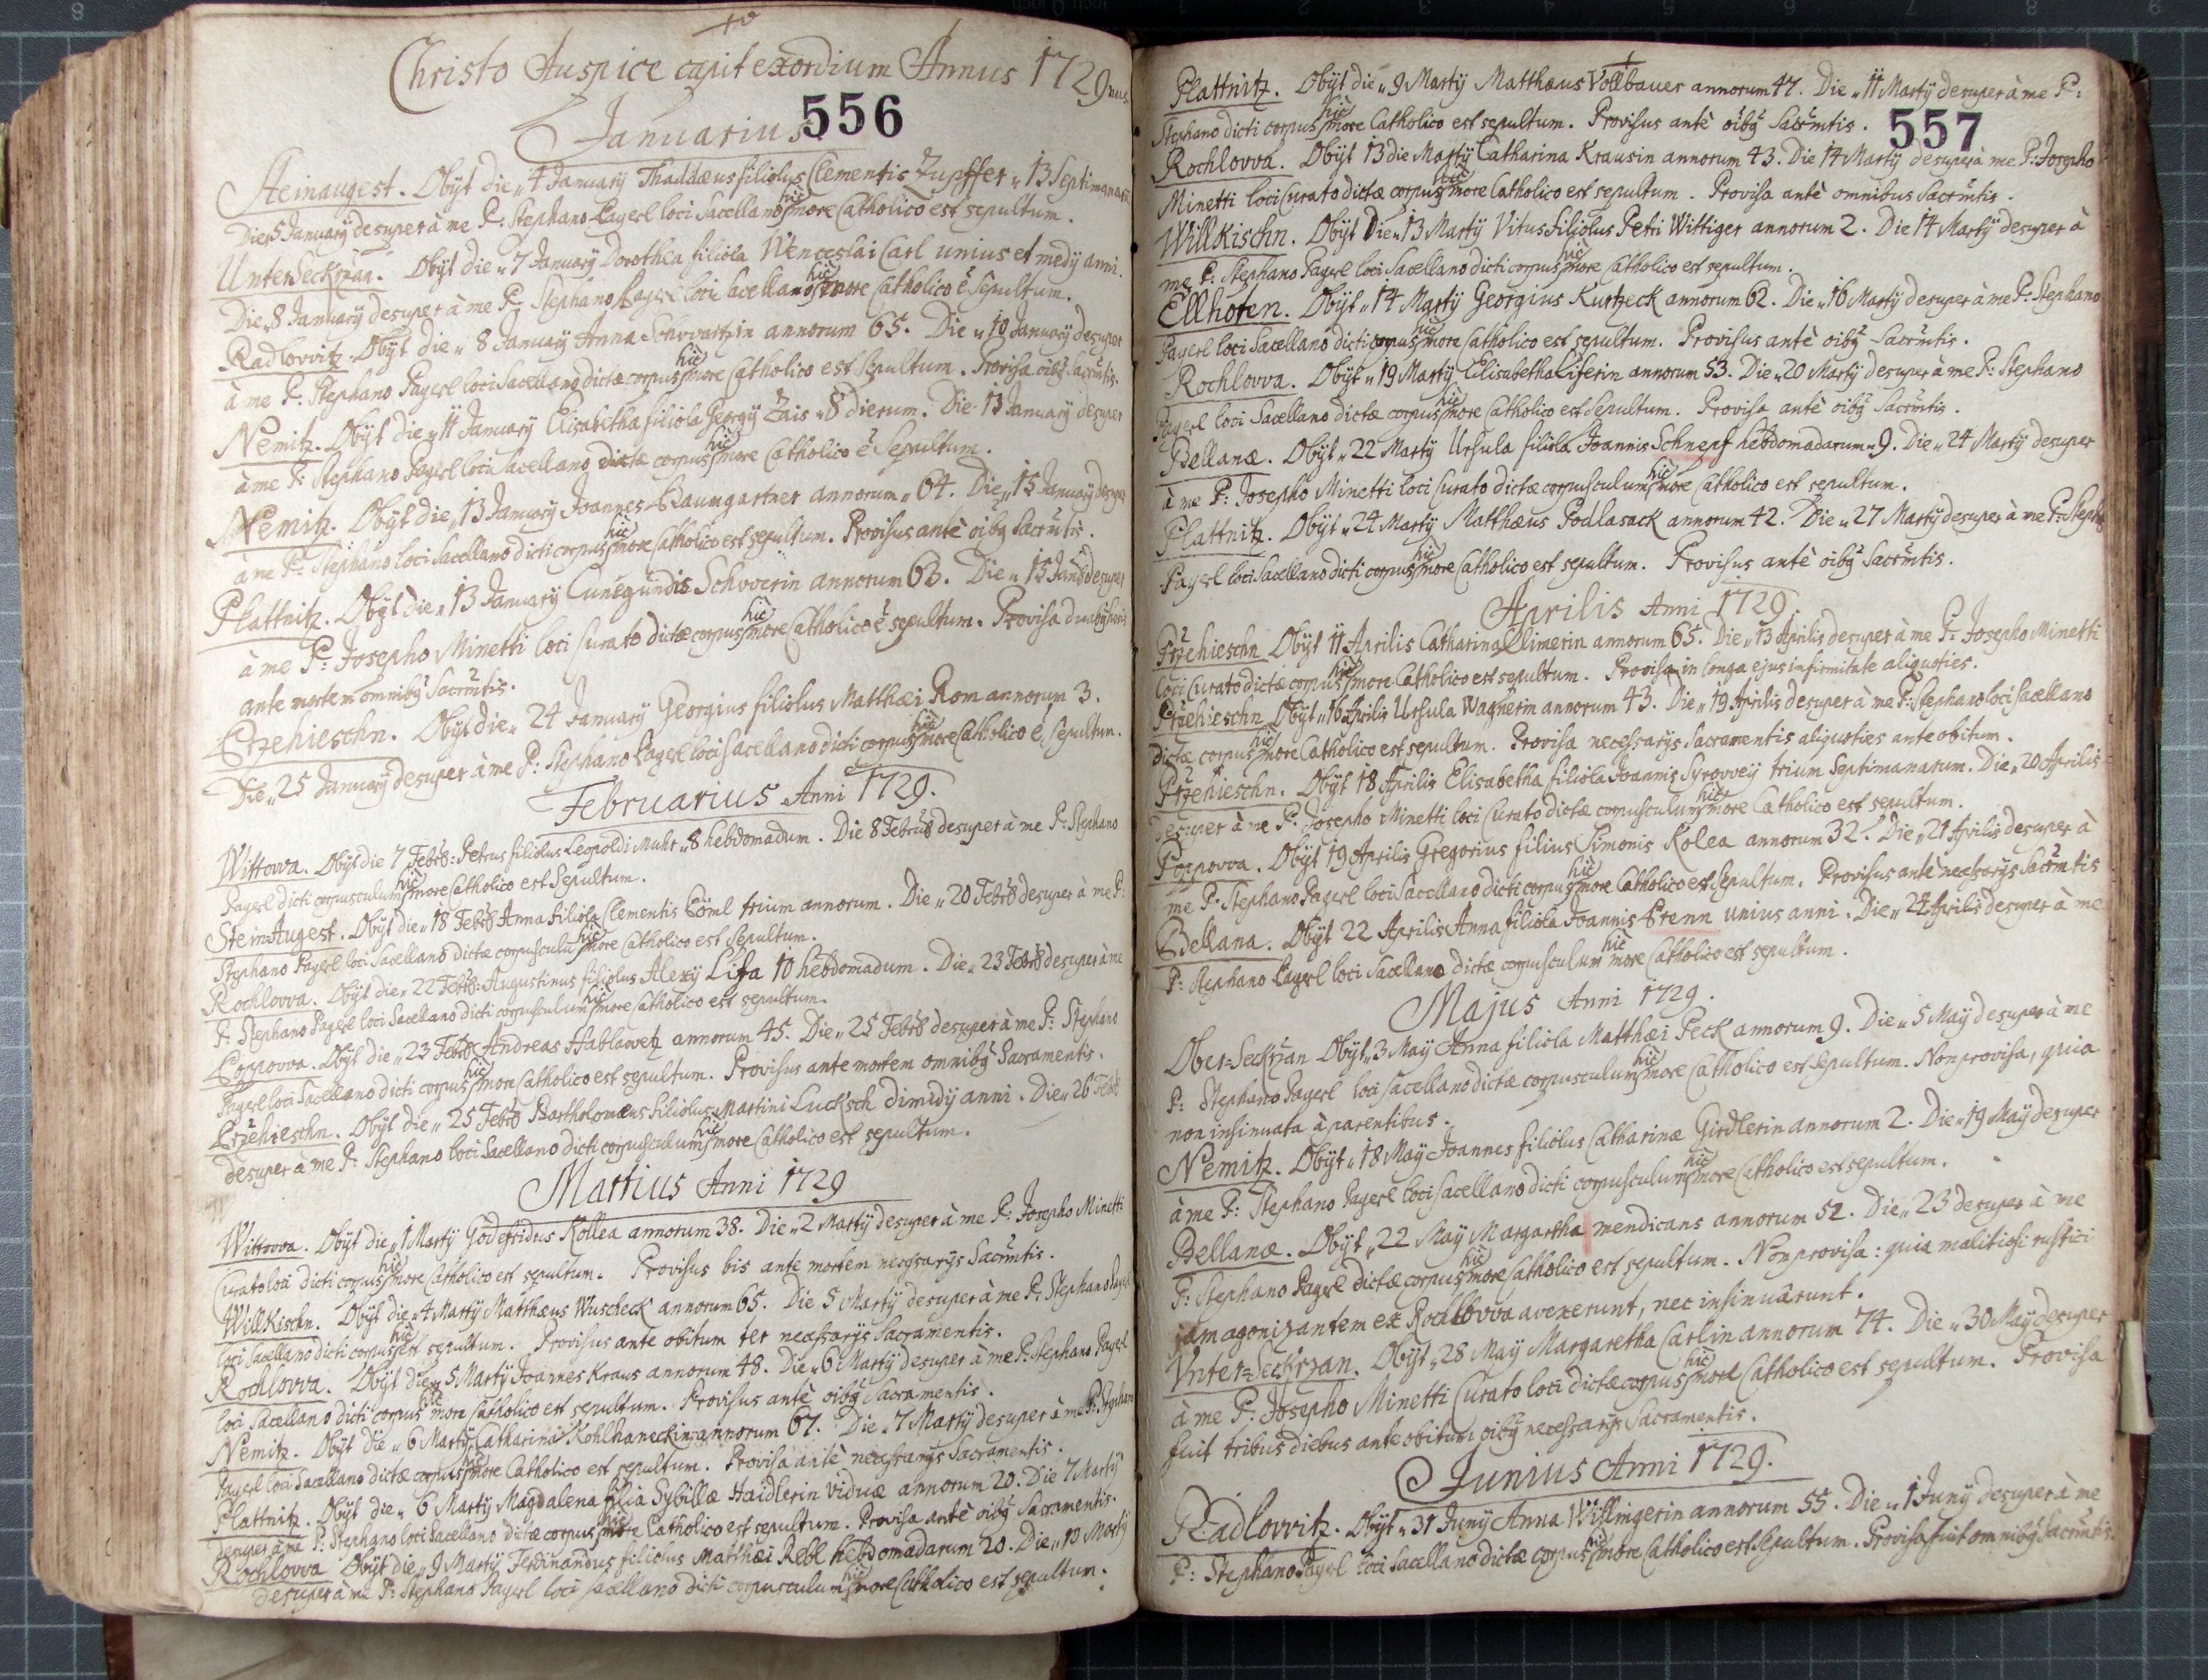 Christo Auspice capit exordium Annus 1729nus
556
Januarius
Steinaugest. Obÿt die „ 4 Januarÿ Thaddæus filiolus Clementis Zupffer „ 13 Septimanarū
Die 5 Januarÿ desuper à me P: Stephano Pagerl loci Sacellano hic more Catholico est sepultum.
Unter Seckrzan. Obÿt die „ 7 Januarÿ Dorothea filiola Wenceslai Carl unius et medÿ anni.
Die „ 8 Januarÿ desuper à me P: Stephano Pagerl loci Sacellano hic more Catholico ē Sepultum.
Radlovvitz. Obÿt die „ 8 Januarÿ Anna Schvvartzin annorum 65. Die „ 10 Januarÿ desuper
à me P: Stephano Pagerl loci Sacellano dictæ corpus hic more Catholico est Sepultum. Provisa oībg Sacrm̄tis.
Nemitz. Obÿt die „ 11 Januarÿ Elisabetha filiola Georgÿ Zais „ 8 dierum. Die 13 Januarÿ desuper
à me P: Stephano Pagerl loci Sacellano dictæ corpus hic more Catholico ē Sepultum.
Nemitz. Obÿt die „ 13 Januarÿ Joannes Baumgartner annorum „ 64. Die „ 15 Januarÿ desuper
à me P: Stephano loci Sacellano dicti corpus hic more Catholico est sepultum. Provisus antè oībg Sacrm̄tis.
Plattnitz. Obÿt die „ 13 Januarÿ Cunegundis Schvverin annorum 63. Die „ 15 Jan desuper
à me P: Josepho Minetti loci Curato dictæ corpus hic more Catholico ē sepultum. Provisa
ante mortem omnibg Sacrm̄tis.
Przehieschn. Obÿt die „ 24 Januarÿ Georgius filiolus Matthæi Rom annorum 3.
Die „ 25 Januarÿ desuper à me P: Stephano Pagerl loci Sacellano dicti corpus hic more Catholico ē Sepultum.
Februarius Anni 1729.
Wittowa. Obÿt die 7 Febr8: Petrus filiolus Leopoldi Muhr „ 8 hebdomadum. Die 8 Febru8 desuper à me P: Stephano
Pagerl dicti corpusculum hic more Catholico est Sepultum.
SteinAugest. Obÿt die „ 18 Febr8 Anna filiola Clementis Böml trium annorum. Die „ 20 Febr8 desuper à me P:
Stephano Pagerl loci Sacellano dictæ corpusculū hic more Catholico est Sepultum.
Rochlovva. Obÿt die „ 22 Febr8: Augustinus filiolus Alexÿ Lifa 10 hebdomadum. Die „ 23 Febr8 desuper à me
P: Stephano Pagerl loci Sacellano dicti corpusculum hic more Catholico est sepultum.
Poppovva. Obÿt die „ 23 Febr8 Andreas Hablawetz annorum 45. Die „ 25 Febr8 desuper à me P: Stephano
Pagerl loci Sacellano dicti corpus hic more Catholico est sepultum. Provisus ante mortem omnibg Sacramentis.
Przehieschn. Obÿt die „ 25 Febr8 Bartholomæus filiolus Martini Lucksch dimidÿ anni. Die „ 26 Febr
desuper à me P: Stephano loci Sacellano dicti corpusculum hic more Catholico est sepultum.
Martius Anni 1729
Wittovva. Obÿt die „ 1 Martÿ Godefridus Kollea annorum 38. Die „ 2 Martÿ desuper à me P: Josepho Minetti
Curato loci dicti corpus hic more Catholico est sepultum. Provisus bis ante mortem necessarÿs Sacrm̄tis.
Willkischn. Obÿt die „ 4 Martÿ Matthæus Wuscheck annorum 65. Die 5 Martÿ desuper à me P: Stephano Pagerl
loci Sacellano dicti corpus hic est sepultum. Provisus ante obitum ter necessarÿs Sacramentis.
Rochlovva. Obÿt die „ 5 Martÿ Joannes Kraus annorum 48. Die „ 6 Martÿ desuper à me P: Stephano Pagerl
loci Sacellano dicti corpus hic more Catholico est sepultum. Provisus antè oībg Sacramentis.
Nemitz. Obÿt die „ 6 Martÿ Catharina Kohlhaneckin annorum 67. Die „ 7 Martÿ desuper à me P: Stephano
Pagerl loci Sacellano dictæ corpus hic more Catholico est sepultum. Provisa antè necessarÿs Sacramentis.
Plattnitz. Obÿt die „ 6 Martÿ Magdalena filia Sybillæ Haidlerin viduæ annorum 20. Die 7 Martÿ
desuper à me P: Stephano loci Sacellano dictæ corpus hic more Catholico est sepultum. Provisa antè oībg Sacramentis.
Rochlovva Obÿt die „ 9 Martÿ Ferdinandus filiolus Matthæi Rebl hebdomadarum 20. Die „ 10 Martÿ
desuper à me P: Stephano Pagerl loci Sacellano dicti corpusculum hic more Catholico est sepultum.
Plattnitz. Obÿt die „ 9 Martÿ Matthæus Vollbauer annorum 47. Die „ 11 Martÿ desuper à me P:
Stephano dicti corpus hic more Catholico est sepultum. Provisus antè oībg Sacrm̄tis.
557
Rochlovva. Obÿt 13 die Martÿ Catharina Krausin annorum 43. Die 14 Martÿ desuper à me P: Josepho
Minetti loci Curato dictæ corpus hic more Catholico est sepultum. Provisa antè omnibus Sacrm̄tis.
Willkischn. Obÿt Die „ 13 Martÿ Vitus filiolus Petri Wittiger annorum 2. Die 14 Martÿ desuper à
me P: Stephano Pagerl loci Sacellano dicti corpus hic more Catholico est sepultum.
Ellhoten. Obÿt „ 14 Martÿ Georgius Kurtzeck annorum 62. Die „ 16 Martÿ desuper à me P: Stephano
Pagerl loci Sacellano dicti corpus hic more Catholico est sepultum. Provisus antè oībg Sacrm̄tis.
Rochlovva. Obÿt „ 19 Martÿ Elisabetha Liferin annorum 53. Die „ 20 Martÿ desuper à me P: Stephano
Pagerl loci Sacellano dictæ corpus hic more Catholico est Sepultum. Provisa antè oībg Sacrm̄tis.
Bellanæ. Obÿt „ 22 Martÿ Ursula filiola Joannis Schnepf hebdomadarum „ 9. Die „ 24 Martÿ desuper
à me P: Josepho Minetti loci Curato dictæ corpusculum hic more Catholico est sepultum.
Plattnitz. Obÿt „ 24 Martÿ Matthæus Podlasack annorum 42. Die „ 27 Martÿ desuper à me P: Stepho
Pagerl loci Sacellano dicti corpus hic more Catholico est sepultum. Provisus antè oībg Sacrm̄tis.
Aprilis Anni 1729.
Przehieschn Obÿt 11 Aprilis Catharina Climerin annorum 65. Die „ 13 Aprilis desuper à me P: Josepho Minetti
loci Curato dictæ corpus hic more Catholico est sepultum. Provisa in longa ejus infirmitate aliquoties.
Przehieschn Obÿt „ 16 Aprilis Ursula Wagnerin annorum 43. Die „ 19 Aprilis desuper à me P: Stephano loci Sacellano
dictæ corpus hic more Catholico est sepultum. Provisa necessarÿs Sacramentis aliquoties ante obitum.
Przehieschn. Obÿt 18 Aprilis Elisabetha filiola Joannis Syrovvey trium Septimanarum. Die „ 20 Aprilis
desuper à me P. Josepho Minetti loci Curato dictæ corpusculum hic more Catholico est sepultum.
Poppovva. Obÿt 19 Aprilis Gregorius filius Simonis Kolea annorum 32. Die „ 21 Aprilis desuper à
me P. Stephano Pagerl loci Sacellano dicti corpus hic more Catholico est Sepultum. Provisus antè necessarÿs Sacrm̄tis
Bellana. Obÿt 22 Aprilis Anna filiola Joannis Prenn unius anni. Die „ 24 Aprilis desuper à me
P: Stephano Pagerl loci Sacellano dictæ corpusculum hic more Catholico est sepultum.
Majus Anni 1729.
Ober=Seckrzan Obÿt „ 3 Maÿ Anna filiola Matthæi Peck annorum 9. Die „ 5 Maÿ desuper à me
P: Stephano Pagerl loci Sacellano dictæ corpusculum hic more Catholico est Sepultum. Non provisa, quia
non insinuata à parentibus.
Nemitz. Obÿt „ 18 Maÿ Joannes filiolus Catharinæ Girdlerin annorum 2. Die „ 19 Maÿ desuper
à me P: Stephano Pagerl loci Sacellano dicti corpusculum hic more Catholico est sepultum.
Bellanæ. Obÿt „ 22 Maÿ Margartha mendicans annorum 52. Die „ 23 desuper à me
P: Stephano Pagerl dictæ corpus hic more Catholico est sepultum. Non provisa: quia malitiosi rustici
jam agonizantem ex Rochlovva avexerunt, nec insinuârunt.
Unter=Seckrzan. Obÿt „ 28 Maÿ Margaretha Carlin annorum 74. Die „ 30 Maÿ desuper
à me P: Josepho Minetti Curato loci dictæ corpus hic more Catholico est sepultum. Provisa
fuit tribus diebus ante obitum oībg necessarÿs Sacramentis.
Junius Anni 1729.
Radlovvitz. Obÿt „ 31 Junÿ Anna Willingerin annorum 55. Die „ 1 Junÿ desuper à me
P: Stephano Pagerl loci Sacellano dictæ corpus hic more Catholico est Sepultum. Provisa fuit omnibg Sacrm̄tis.